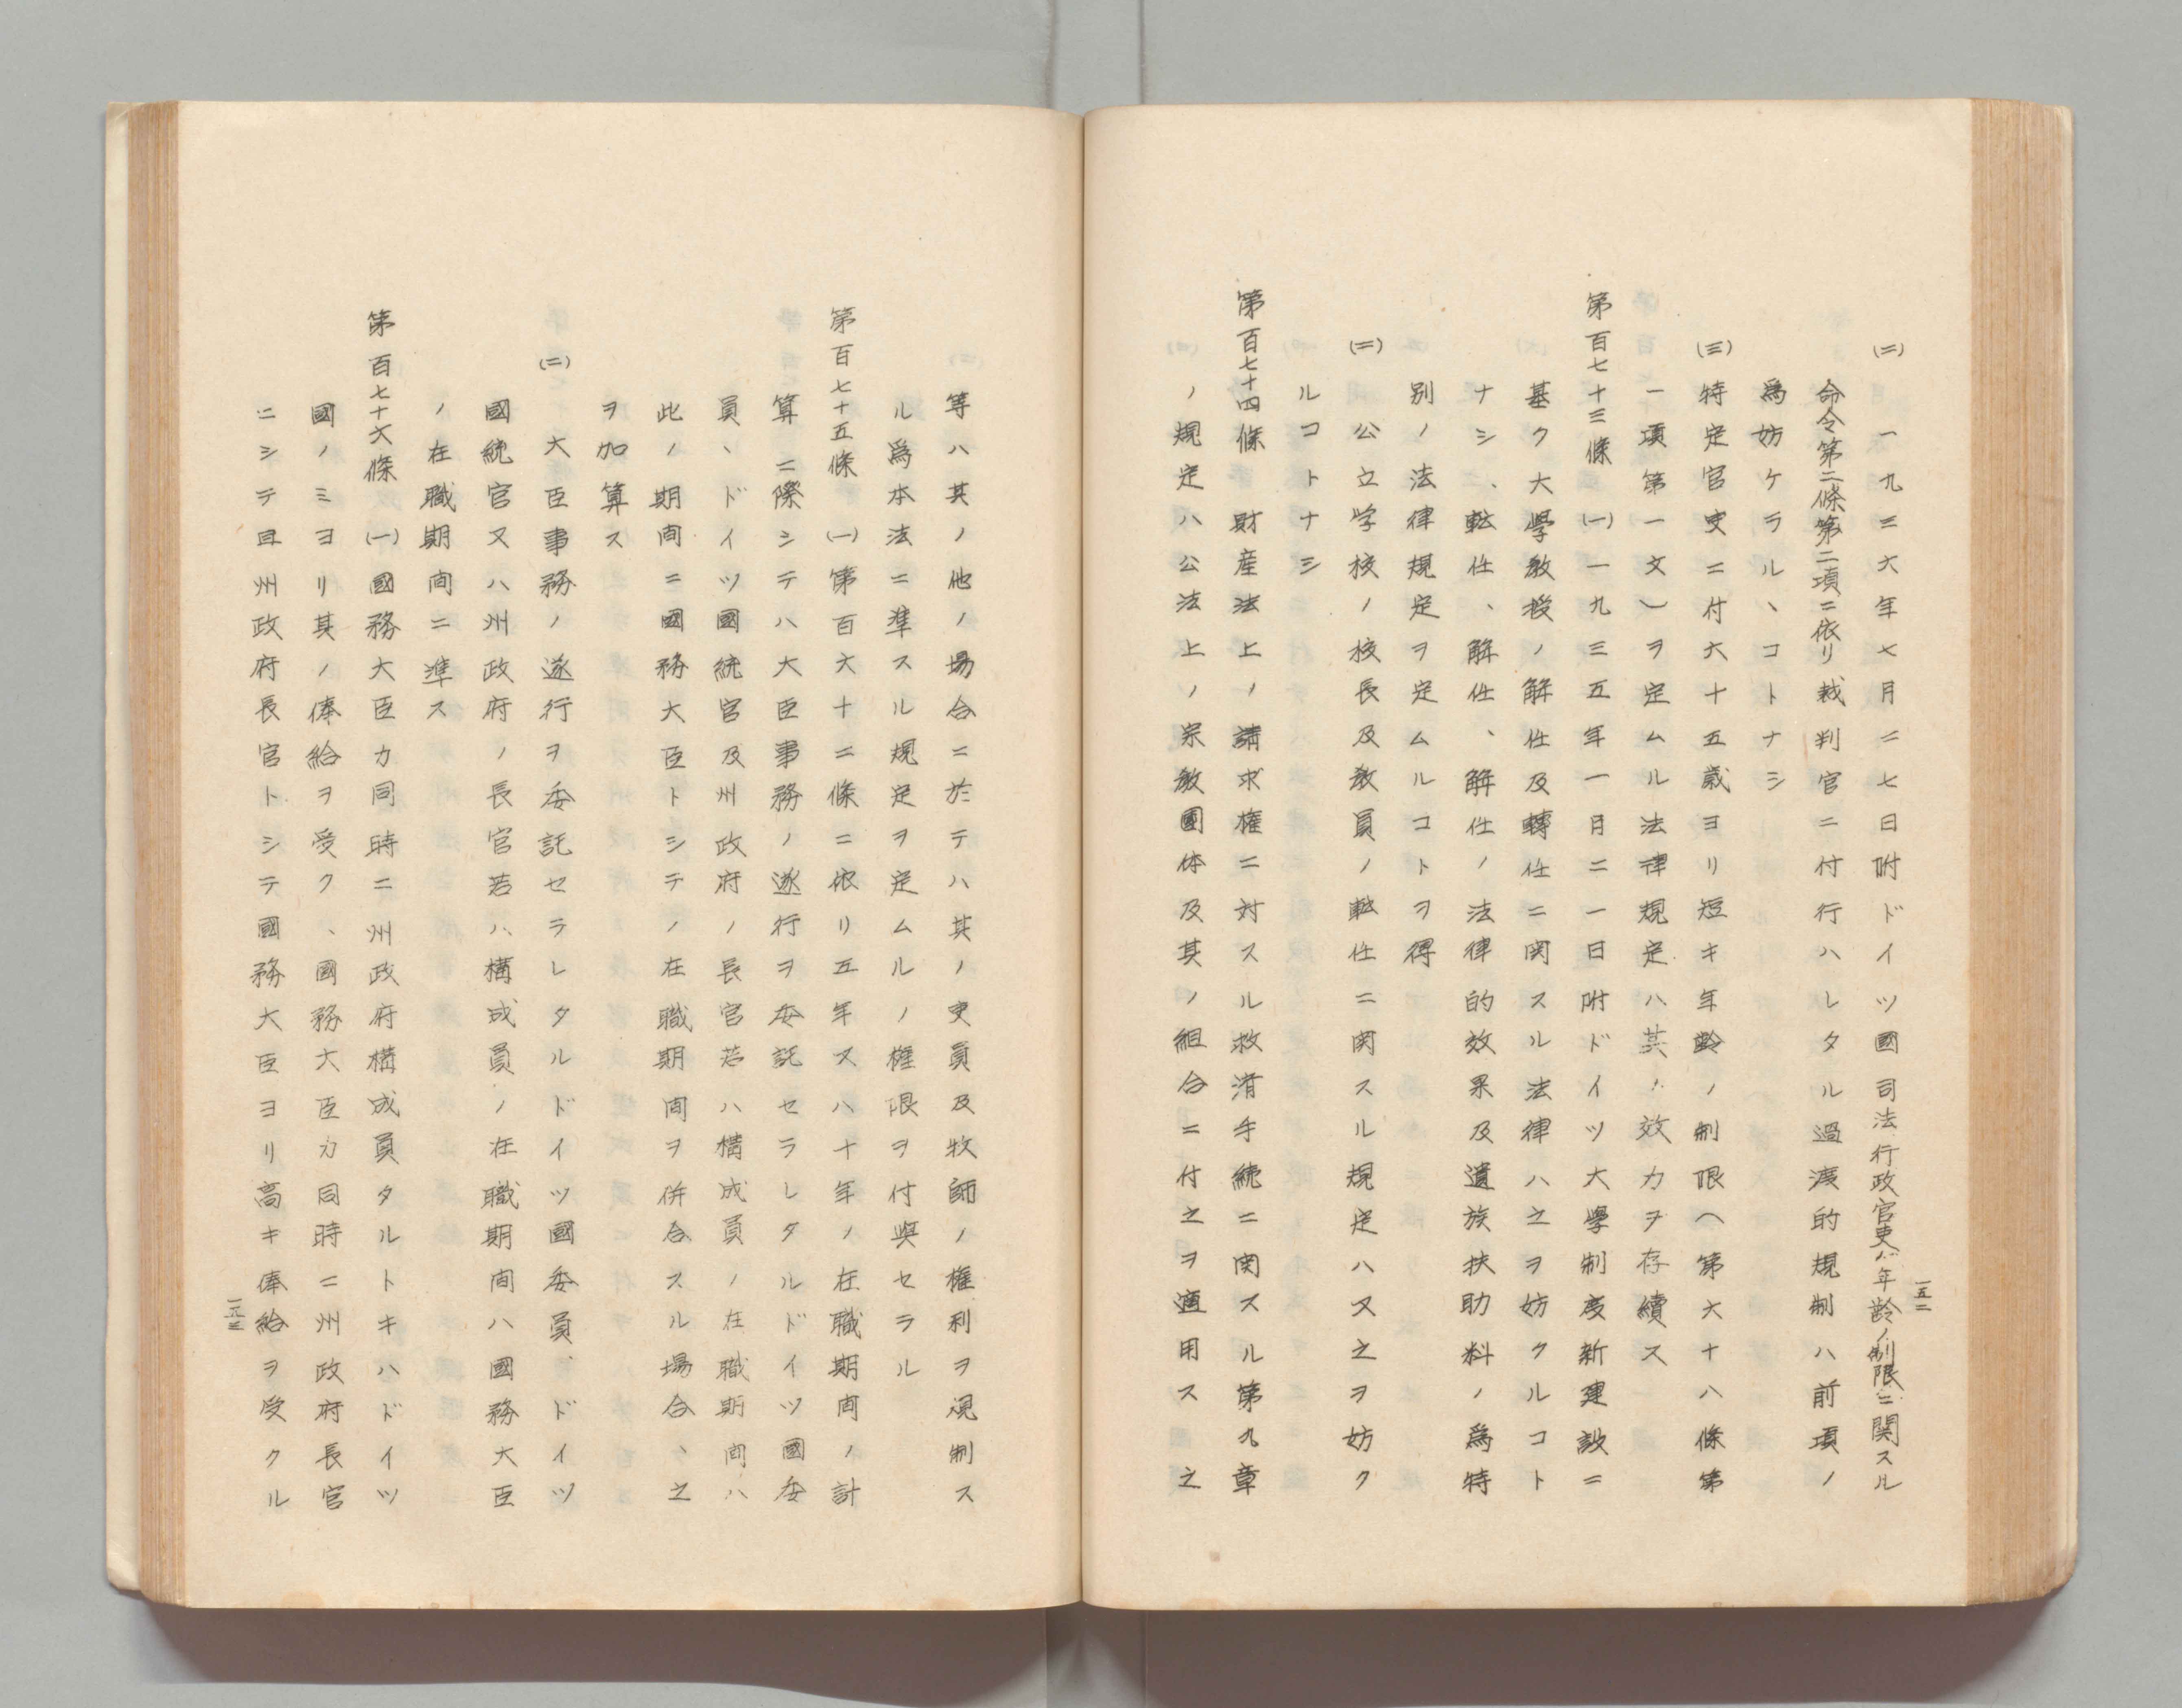 一五二
(二)　一九三六年七月二七日附ドイツ國司法行政官吏ノ年齢ノ制限ニ関スル
命令第二條第二項ニ依リ裁判官ニ付行ハレタル過渡的規制ハ前項ノ
爲妨ケラルヽコトナシ
(三)特定官吏ニ付六十五歳ヨリ短キ年齢ノ制限(第六十八條第
一項第一文)ヲ定ムル法律規定ハ其ノ効力ヲ存續ス
第百七十三條　(一)一九三五年一月二一日附ドイツ大學制度新建設ニ
基ク大學教授ノ解任及轉任ニ関スル法律ハ之ヲ妨クルコト
ナシ、転任、解任、解任ノ法律的效果及遺族扶助料ノ爲特
別ノ法律規定ヲ定ムルコトヲ得
(二)公立学校ノ校長及教員ノ転任ニ関スル規定ハ又之ヲ妨ク
ルコトナシ
第百七十四條　財産法上ノ請求権ニ対スル救済手続ニ関スル第九章
ノ規定ハ公法上ノ宗教團体及其ノ組合ニ付之ヲ適用ス之
等ハ其ノ他ノ場合ニ於テハ其ノ吏員及牧師ノ権利ヲ規制ス
ル爲本法ニ準スル規定ヲ定ムルノ権限ヲ付與セラル
第百七十五條　(一)第百六十二條ニ依リ五年又ハ十年ノ在職期間ノ計
算ニ際シテハ大臣事務ノ遂行ヲ委託セラレタルドイツ國委
員、ドイツ國統官及州政府ノ長官若ハ構成員ノ在職期間ハ
此ノ期間ニ國務大臣トシテノ在職期間ヲ併合スル場合、之
ヲ加算ス
(二)　大臣事務ノ遂行ヲ委託セラレタルドイツ國委員、ドイツ
國統官又ハ州政府ノ長官若ハ構成員ノ在職期間ハ國務大臣
ノ在職期間ニ準ス
第百七十六條　(一)國務大臣カ同時ニ州政府構成員タルトキハドイツ
國ノミヨリ其ノ俸給ヲ受ク、國務大臣カ同時ニ州政府長官
ニシテ且州政府長官トシテ國務大臣ヨリ高キ俸給ヲ受クル